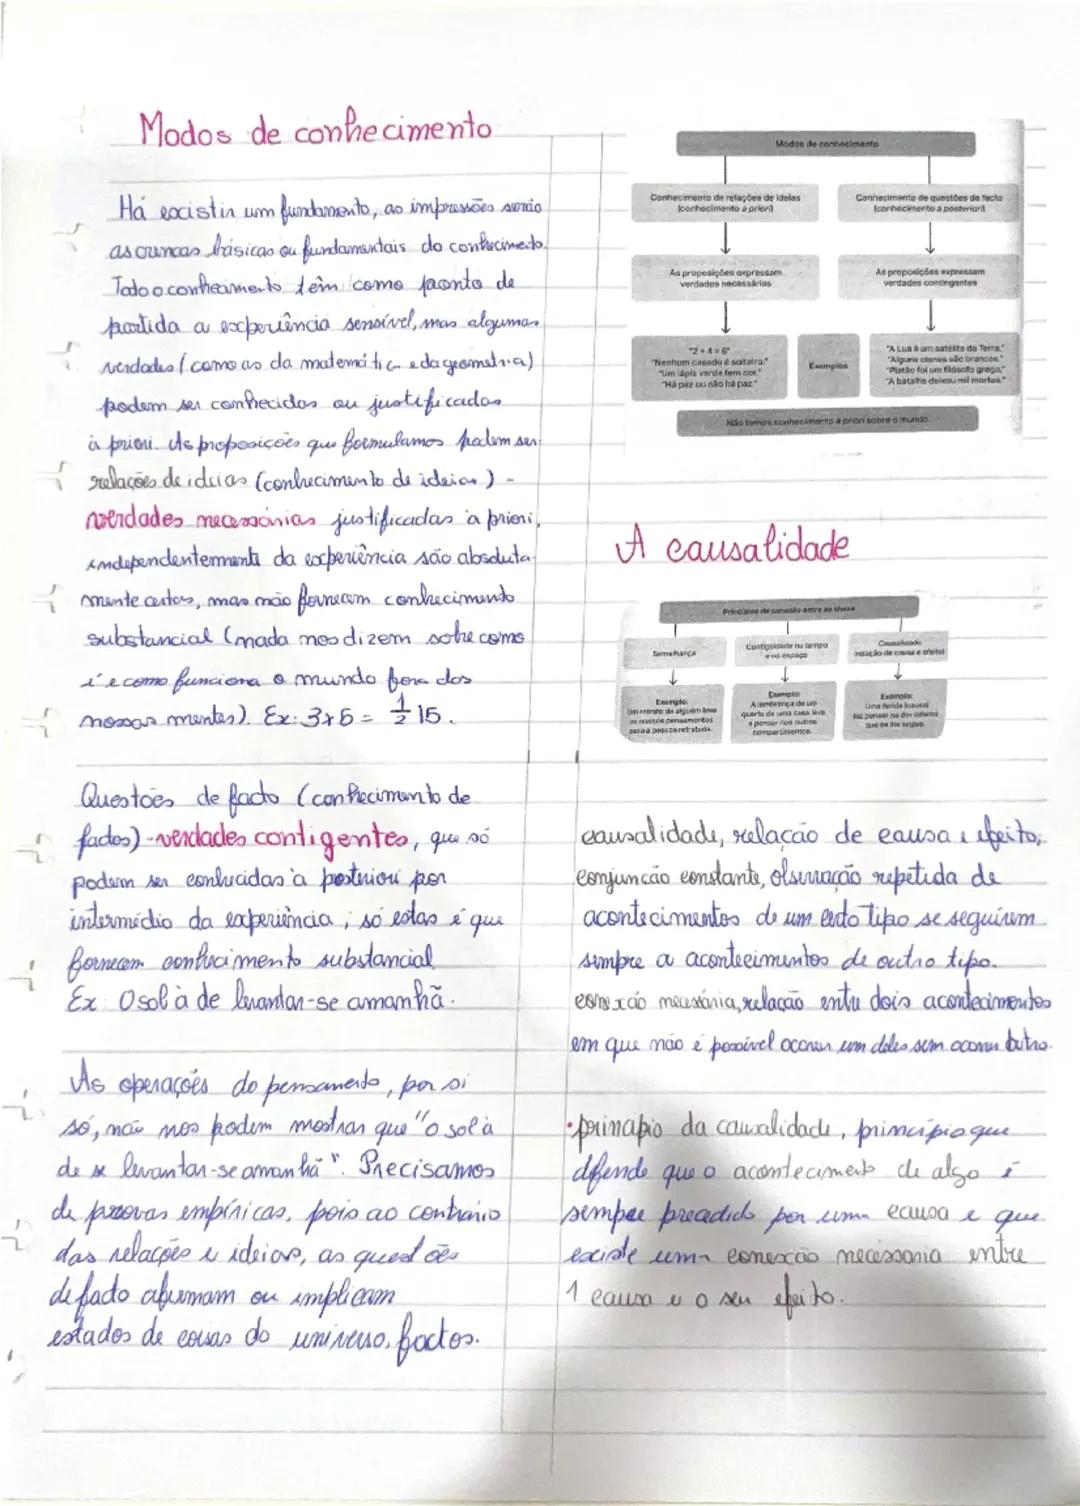 Modos de conhecimento
Há existir um fundamento, as impressões serão
as crenças básicas ou fundamentais do conhecimento.
Todo o conhecimento têm como ponto de
partida a experiência sensível, mas algumas
verdades (como as da matemática e da geometria)
podem ser conhecidas ou justificadas
à priori. As proposições que formulamos podem ser:
relações de ideias (conhecimento de ideias) -
verdades necessárias justificadas à priori,
independentemente da experiência são absoluta-
mente certas, mas não fornecem conhecimento
substancial (nada nos dizem sobre como
é e como funciona o mundo fora das
nossas mentes). Ex: 3+5 = 1/2 15.
Questões de facto (conhecimento de
factos) - verdades contigentes, que só
podem ser conhecidas à posteriori por
intermédio da experiência; só estas é que
fornecem conhecimento substancial
Ex: O sol à de levantar-se amanhã.
As operações do pensamento, por si
só, não nos podem mostrar que "o sol à
de se levantar-se amanhã". Precisamos
de provas empíricas, pois ao contrário
das relações e ideias, as questões
de facto afirmam ou implicam
estados de coisas do universo, factos.
Modos de conhecimento
Conhecimento de relações de ideias
(conhecimento a priori)
Conhecimento de questões de facto
(conhecimento a posteriori)
As proposições expressam
verdades necessárias
As proposições expressam
verdades contingentes
"2 + 4 = 6"
"Nenhum casado é solteiro."
"Um lápis verde tem cor."
"Há paz ou não há paz."
Exemplos
"A Lua é um satélite da Terra."
"Alguns cisnes são brancos."
"Platão foi um filósofo grego."
"A batalha deixou mil mortos."
Não temos conhecimento a priori sobre o mundo.
A causalidade
Princípios de conexão entre as ideias
Semelhança
Contiguidade no tempo
e no espaço
Causalidade
(relação de causa e efeito)
Exemplo:
Um retrato de alguém leva
os nossos pensamentos
para a pessoa retratada.
Exemplo:
A lembrança de um
quarto de uma casa leva
a pensar nos outros
compartimentos.
Exemplo:
Uma ferida (causa)
faz pensar na dor (efeito)
que se lhe segue.
causalidade, relação de causa e efeito;
conjuncão constante, observação repetida de
acontecimentos de um certo tipo se seguirem
sempre a acontecimentos de outro tipo.
conexão necessária, relação entre dois acontecimentos
em que não é possível ocorrer um deles sem ocorrer outro.
•princípio da causalidade, princípio que
defende que o acontecimento de algo é
sempre precedido por uma causa e que
existe uma conexão necessária entre
1 causa e o seu efeito.